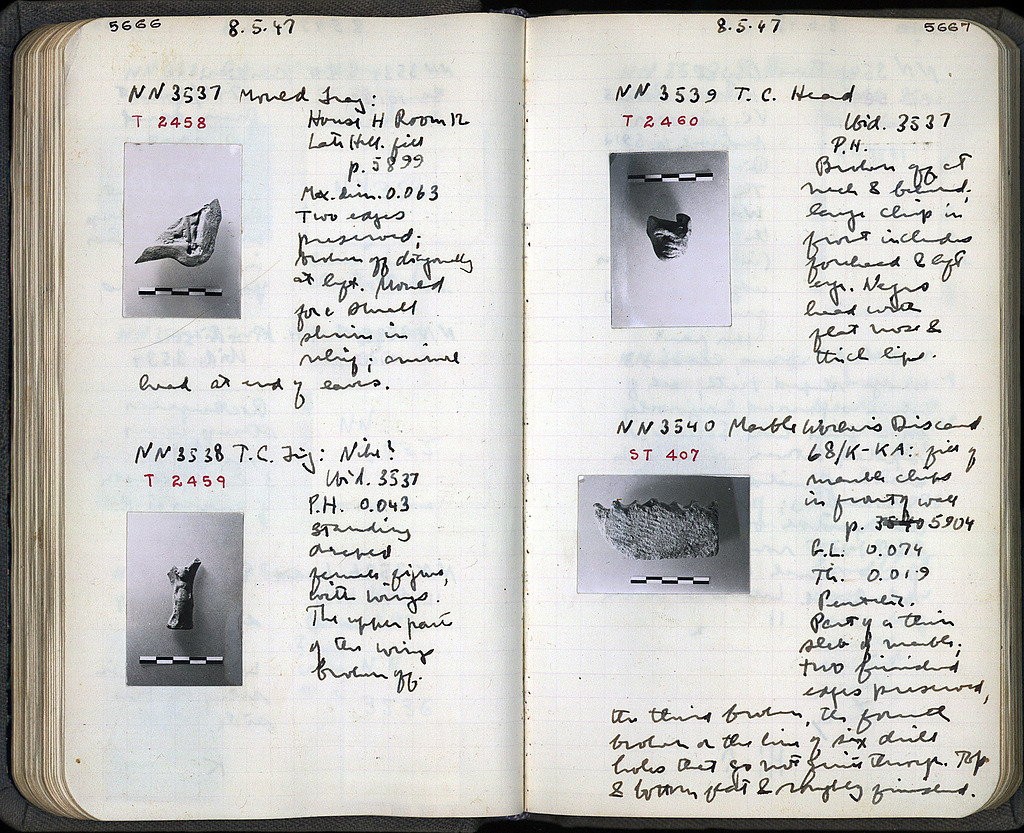 5666
8.5.47
NN 3537 Mould Frag:
T 2458
House H Room 12
Late Hell. fill
p. 5899
Max. dim. 0.063
Two edges
preserved;
broken off diagonally
at left. Mould
for a small
shrine in
relief; animal
head at end of eaves.
NN 3538 T.C. Fig: Nike?
T 2459
Ibid. 3537
P.H. 0.043
Standing
draped
female figure,
with wings.
The upper part
of the wings
broken off.
8.5.47
5667
NN 3539 T.C. Head
T 2460
Ibid. 3537
P.H.
Broken off at
neck & behind,
large chip in
front includes
forehead & left
eye. Negro
head with
flat nose &
thick lips.
NN 3540 Marble Worker's Discard
ST 407
68/K-KA: fill of
marble chips
in front of wall
p. 3540 5904
G.L. 0.074
Th. 0.019
Pentelic.
Part of a thin
slab of marble,
two finished
edges preserved,
the third broken, the fourth
broken on the line of six drill
holes that go not quite through. Top
& bottom flat & roughly finished.